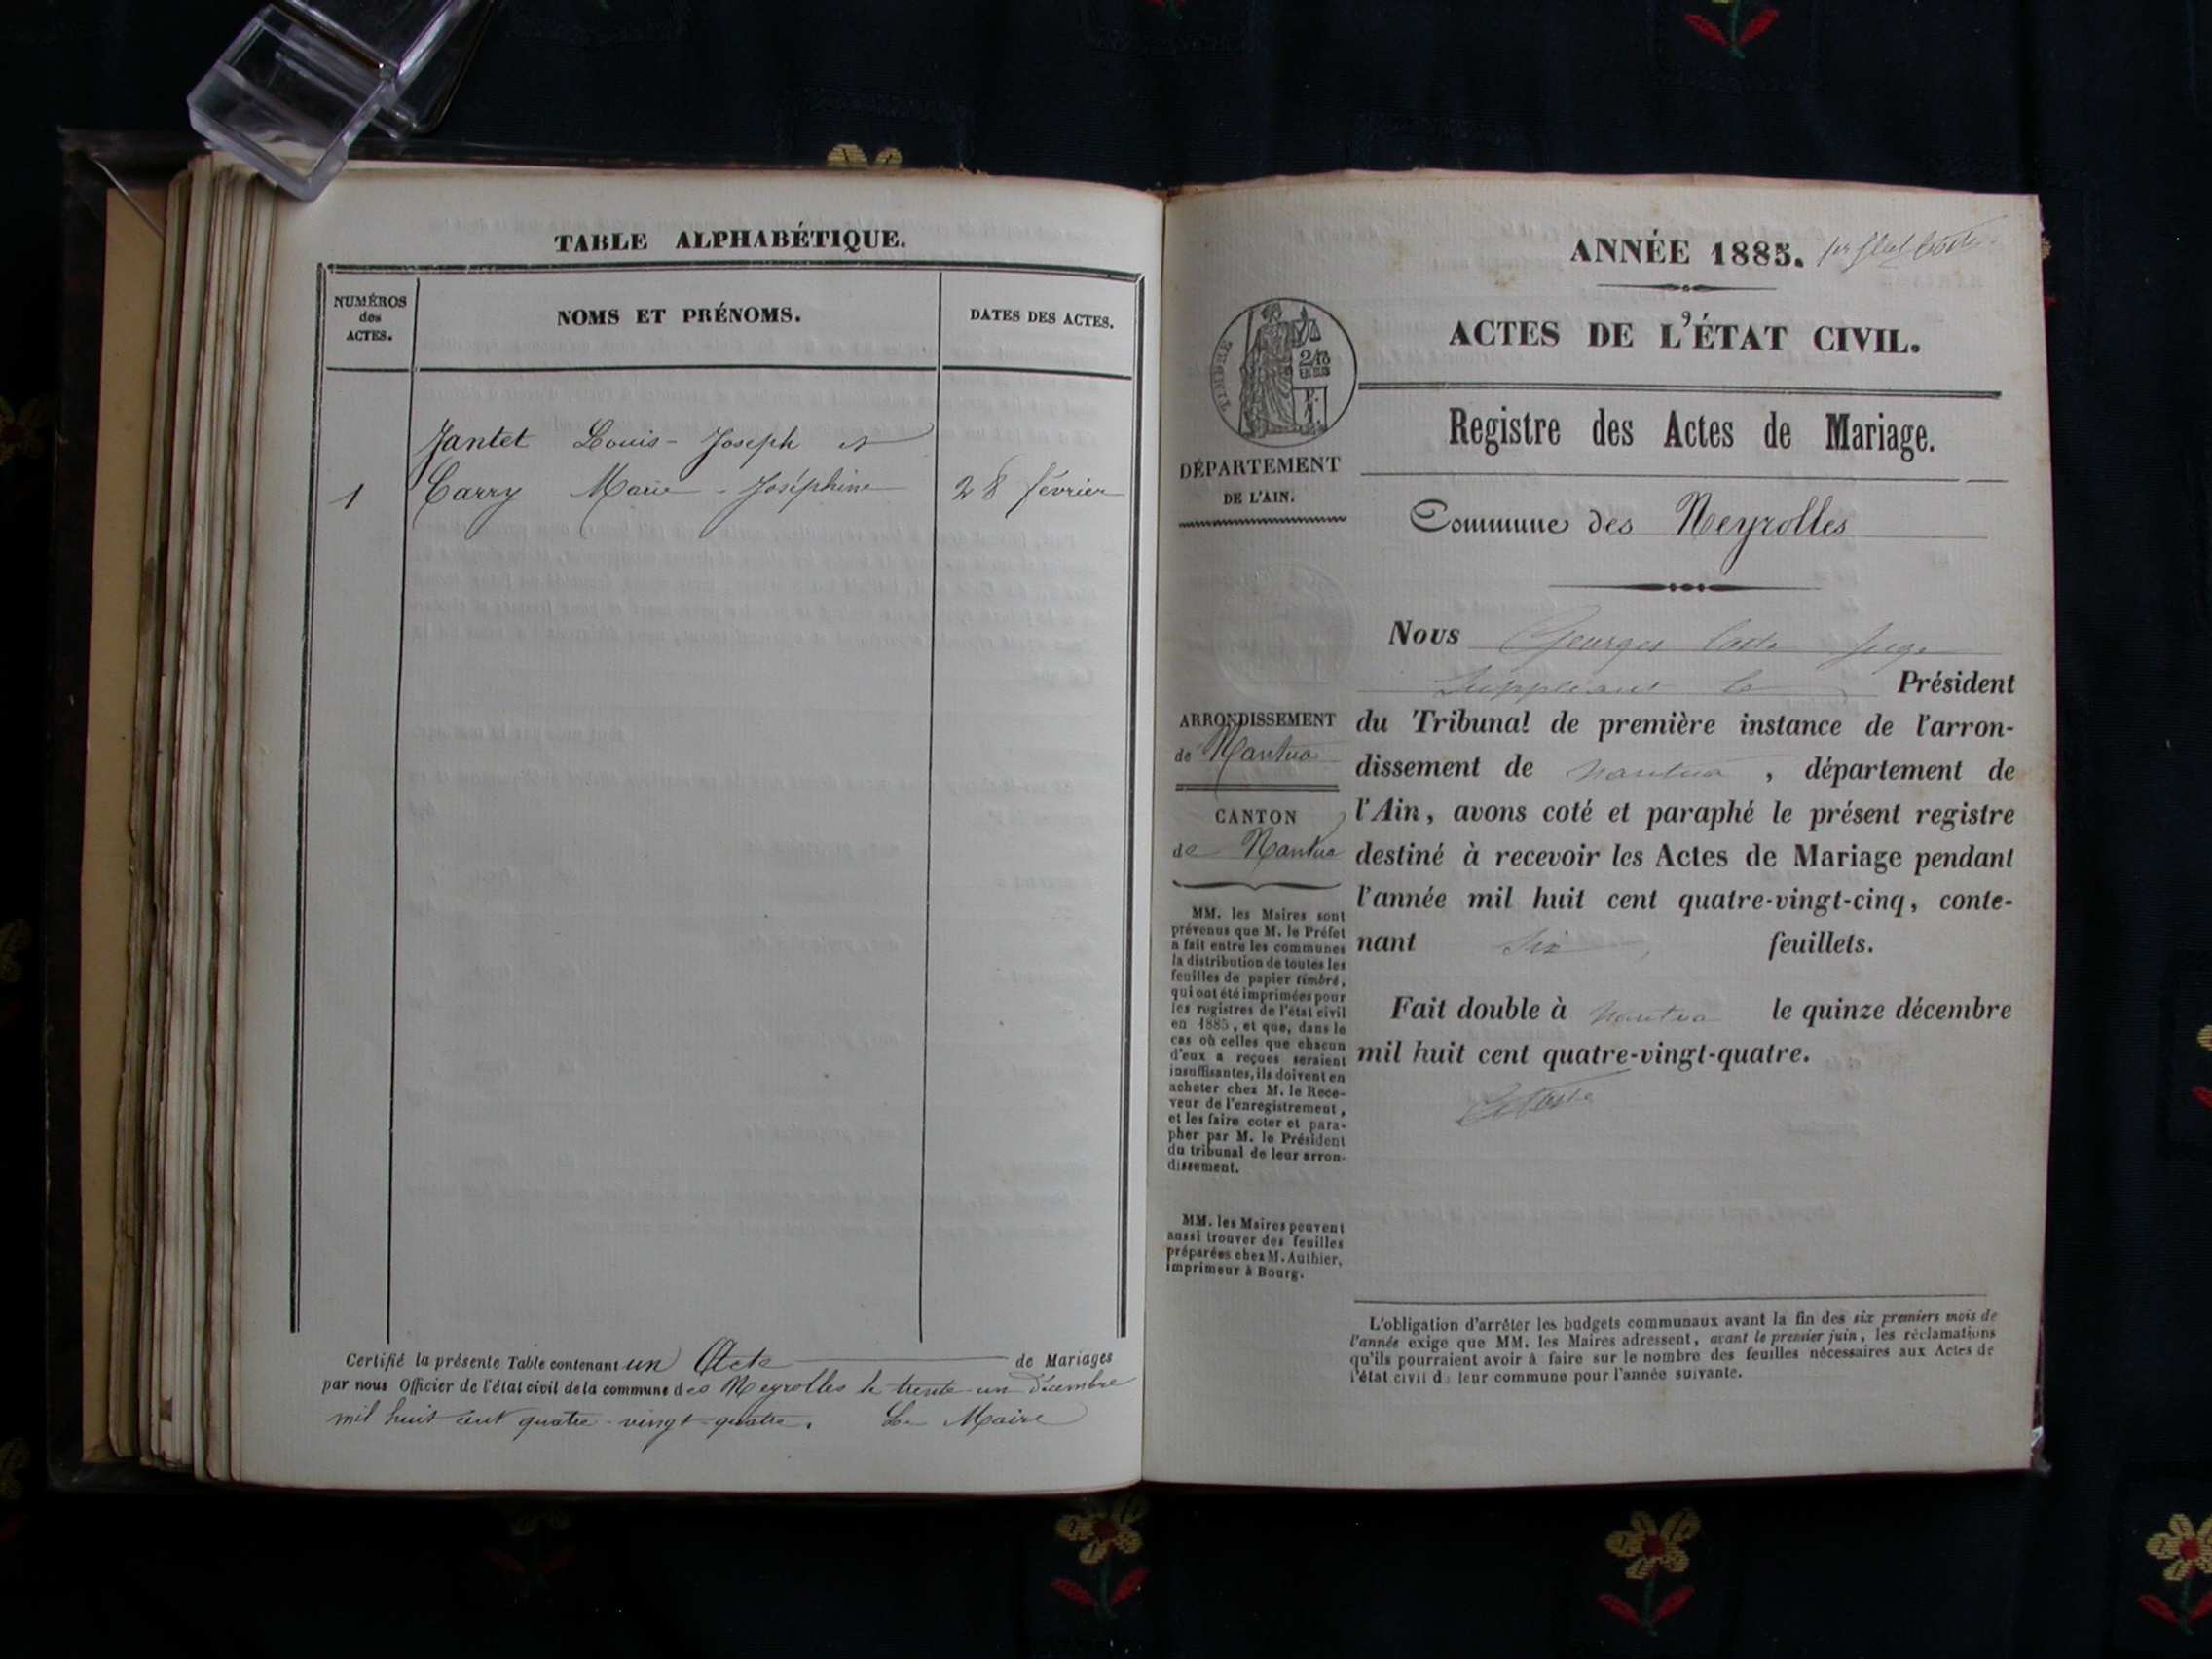 TABLE ALPHABÉTIQUE.
NUMÉROS
des
ACTES.
NOMS ET PRÉNOMS.
DATES DES ACTES.
Jantet Louis-Joseph et
1 Carry Marie-Joséphine 28 février
Certifié la présente Table contenant un Acte de Mariages
par nous Officier de l'état civil de la commune des Neyrolles le trente-un décembre
mil huit cent quatre-vingt-quatre. Le Maire
ANNÉE 1885.
ACTES DE L'ÉTAT CIVIL.
TIMBRE
Registre des Actes de Mariage.
DÉPARTEMENT
DE L'AIN.
Commune des Neyrolles
ARRONDISSEMENT
de Nantua
CANTON
de Nantua
MM. les Maires sont
prévenus que M. le Préfet
a fait entre les communes
la distribution de toutes les
feuilles de papier timbré,
qui ont été imprimées pour
les registres de l'état civil
en 1885, et que, dans le
cas où celles que chacun
d'eux a reçues seraient
insuffisantes, ils doivent en
acheter chez M. le Rece-
veur de l'enregistrement,
et les faire coter et para-
pher par M. le Président
du tribunal de leur arron-
dissement.
MM. les Maires peuvent
aussi trouver des feuilles
préparées chez M. Authier,
imprimeur à Bourg.
Nous Georges Coste Juge
Suppléant le Président
du Tribunal de première instance de l'arron-
dissement de Nantua, département de
l'Ain, avons coté et paraphé le présent registre
destiné à recevoir les Actes de Mariage pendant
l'année mil huit cent quatre-vingt-cinq, conte-
nant six feuillets.
Fait double à Nantua le quinze décembre
mil huit cent quatre-vingt-quatre.
L'obligation d'arrêter les budgets communaux avant la fin des six premiers mois de
l'année exige que MM. les Maires adressent, avant le premier juin, les réclamations
qu'ils pourraient avoir à faire sur le nombre des feuilles nécessaires aux Actes de
l'état civil de leur commune pour l'année suivante.